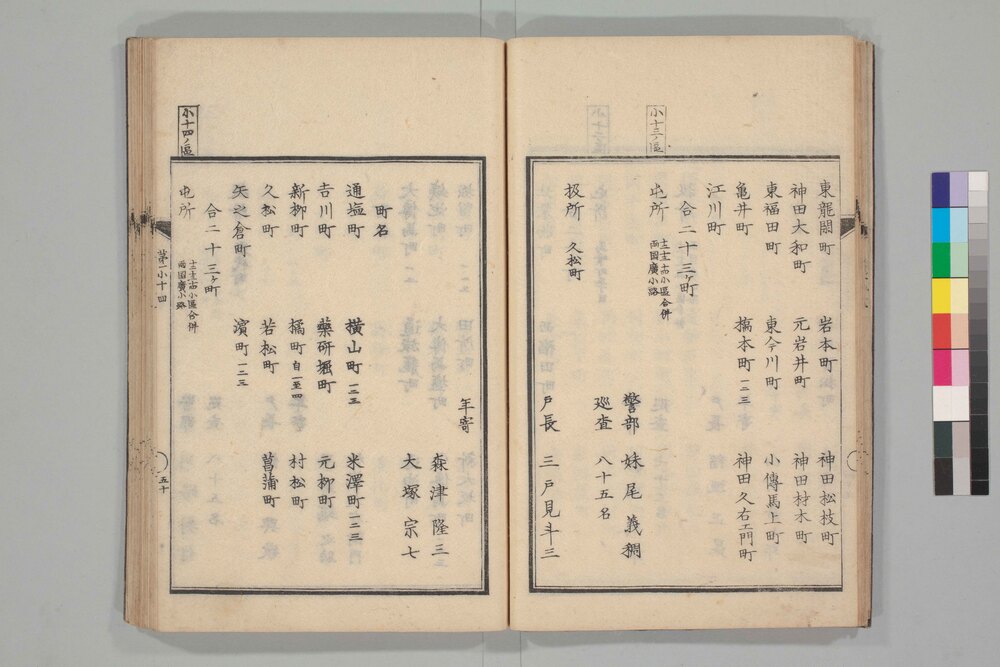 東龍閑町 岩本町 神田松枝町
神田大和町 元岩井町 神田材木町
東福田町 東今川町 小傳馬上町
亀井町 橋本町 一二三 神田久右エ門町
江川町
合二十三ヶ町
小十三ノ區
屯所 十二十三十四小區合併 両国廣小路
警部 妹尾義稠
巡査 八十五名
扱所 久松町
戸長 三戸見斗三
年寄 森津隆三
大塚宗七
町名
通塩町 横山町 一二三 米澤町 一二三
吉川町 藥研堀町 元柳町
新柳町 橘町 自一至四 村松町
久松町 若松町 菖蒲町
矢之倉町 濱町 一二三
合二十三ヶ町
小十四ノ區
屯所 十二十三十四小區合併 両国廣小路
第一小十四
五十